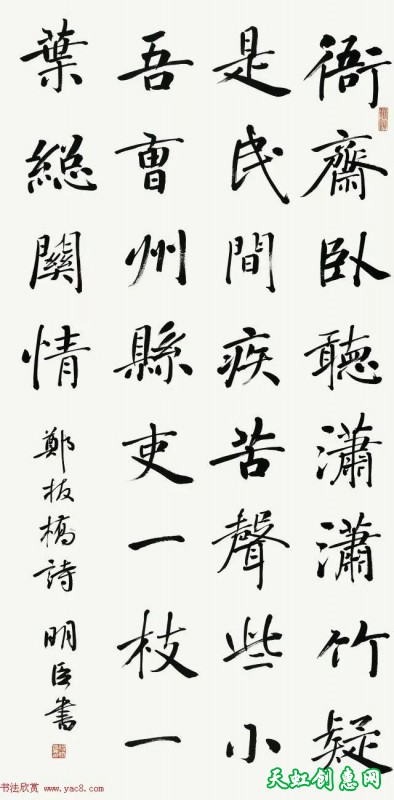 衙齋臥聽瀟瀟竹疑
是民間疾苦聲些小
吾曹州縣吏一枝一
葉總關情
鄭板橋詩 明臣書
书法欣赏 →www.yac8.com
天虹创惠网